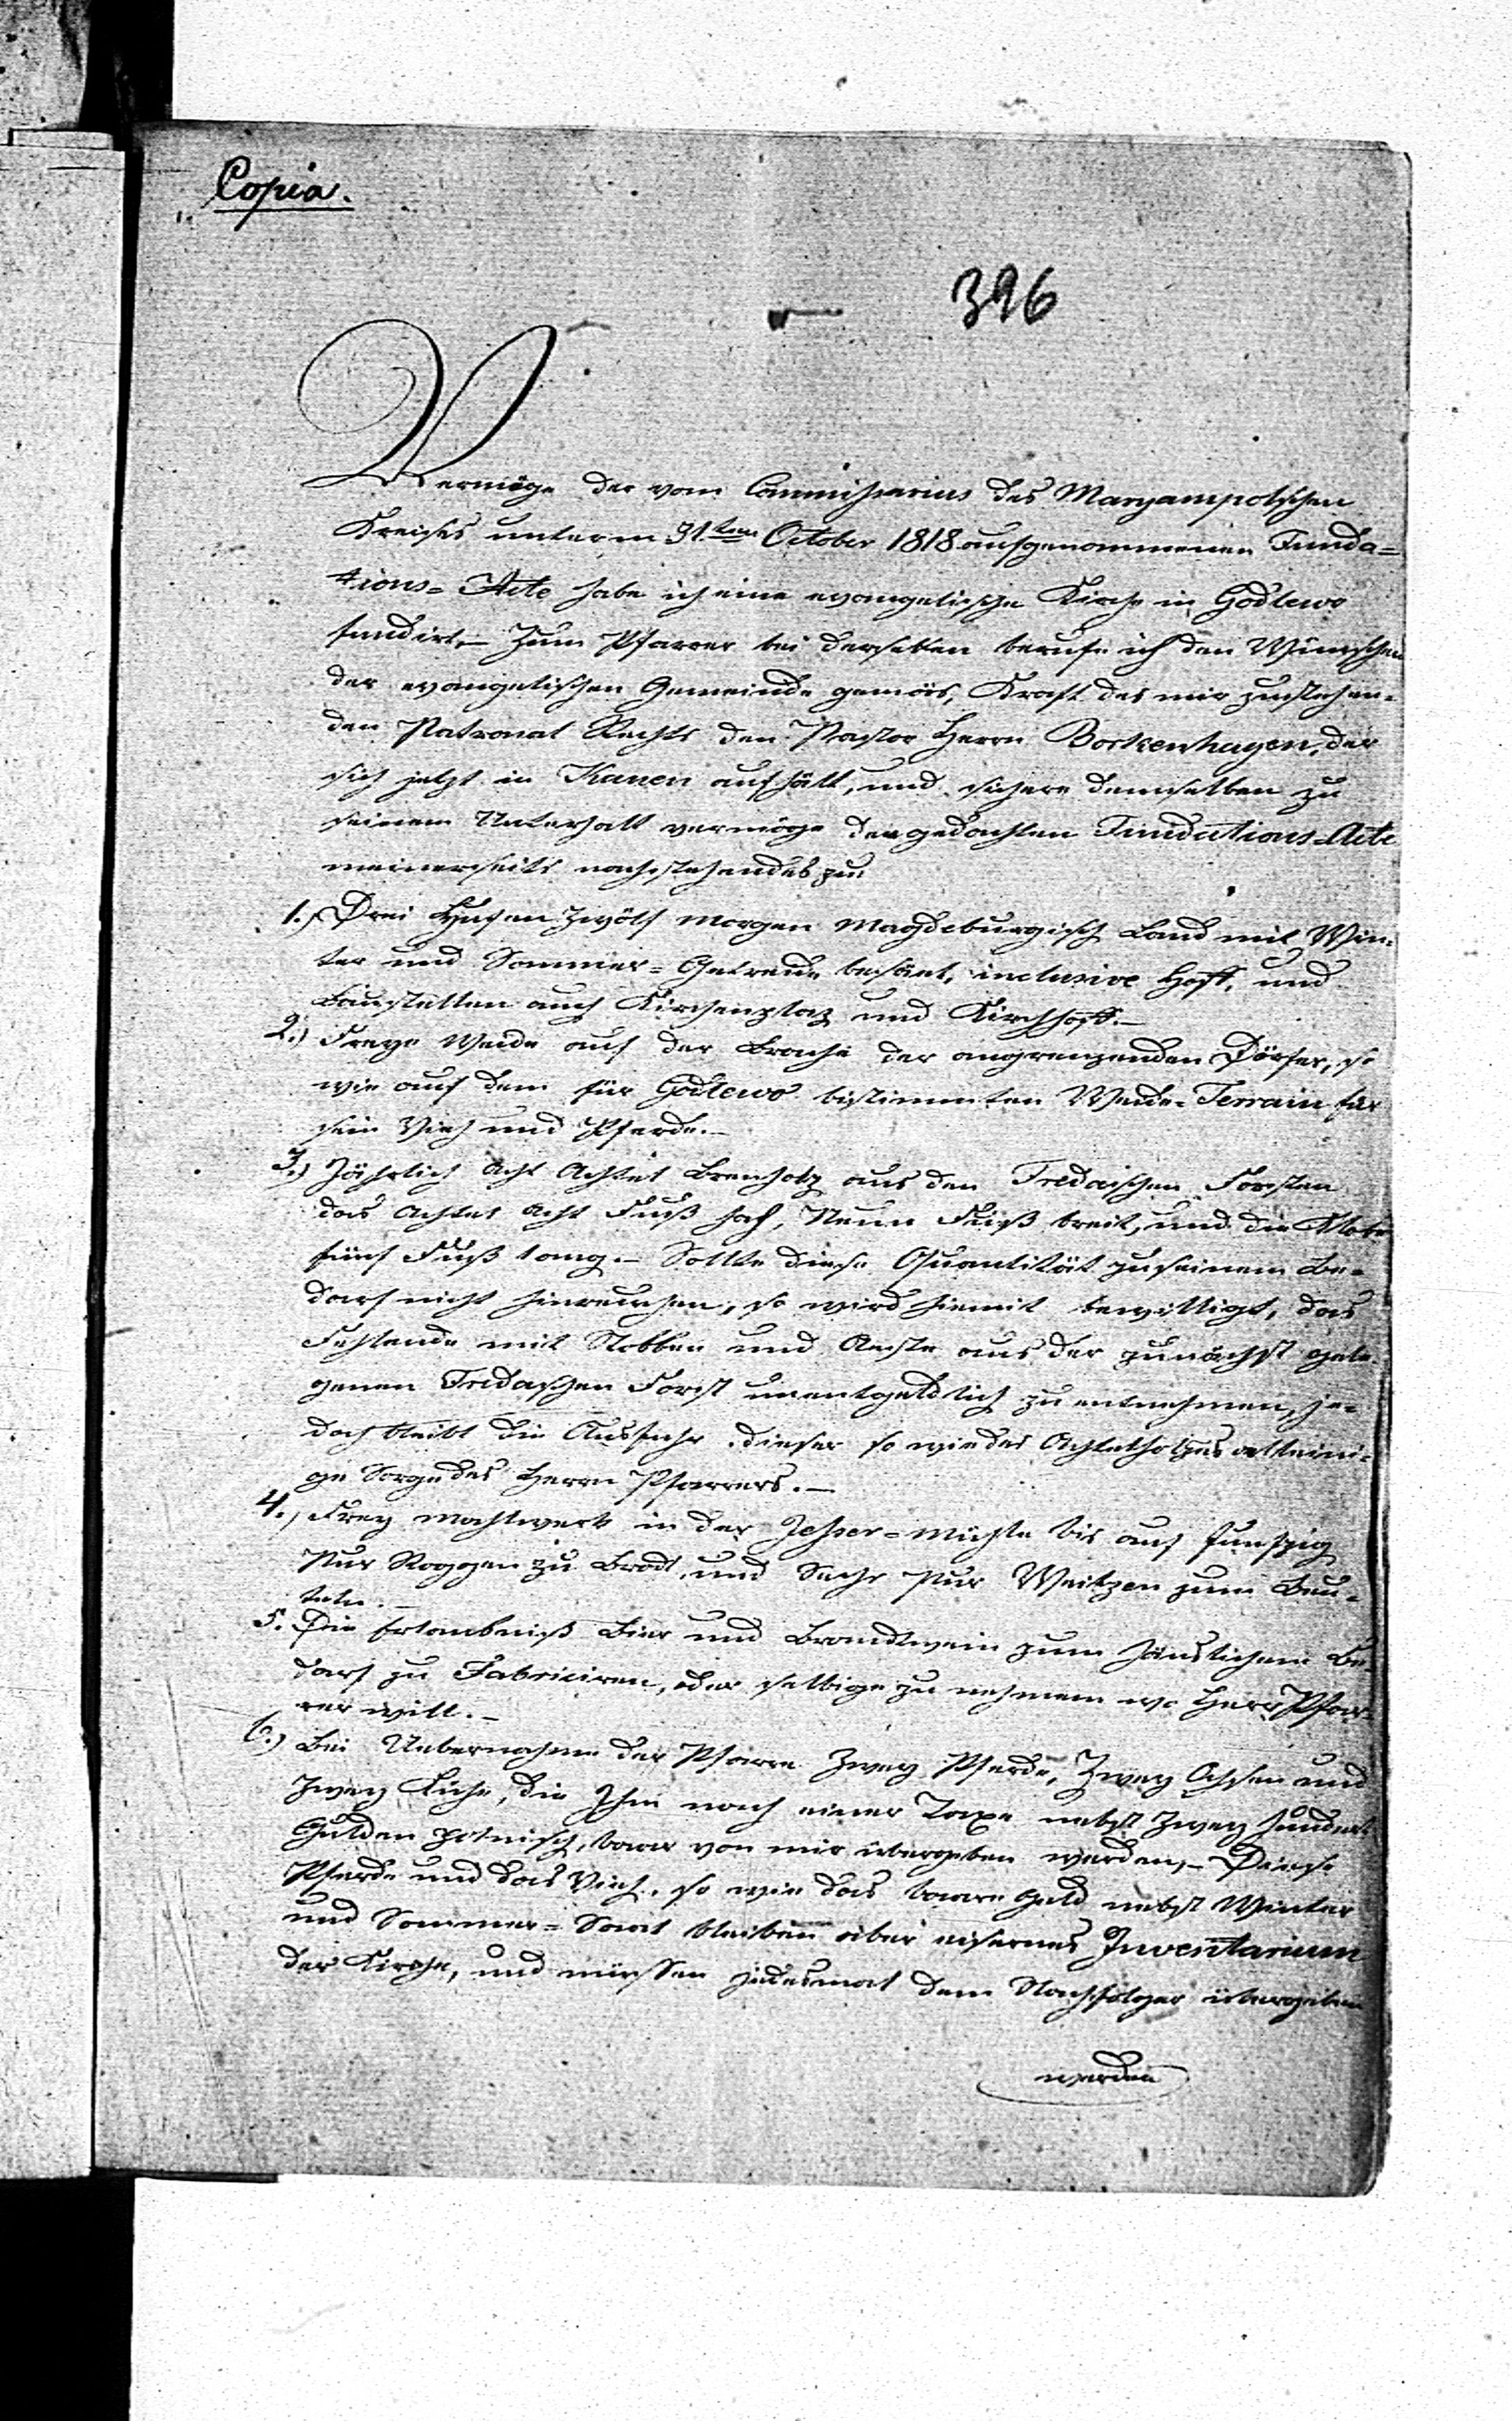 Copia.
396
Vermöge der vom Commissarius des Maryampolschen
Kreises unterm 31.ten October 1818 aufgenommenen Funda=
tions=Acte habe ich eine evangelische Kirche in Godlewo
fundirt,– Zum Pfarrer bei derselben berufe ich den Wünschen
der evangelischen Gemeinde gemäs, Kraft des mir zustehen=
den Patronat Rechts den Pastor Herrn Bockenhagen, der
sich jetzt in Kauen aufhält, und sichere demselben zu
seinem Unterhalt vermöge der gedachten Fundations-Acte
meinerseits nachstehendes zu
1.) Drei Hufen zwölf Morgen Magdeburgisch Land mit Win=
ter und Sommer=Getreide besäet, inclusive Hoff, und
Baustellen auch Kirchenplaz und Kirchhoff.–
2.) Freye Weide auf der Brache der angrenzenden Dörfer, so
wie auf dem für Godlewo bestimmten Weide=Terrain für
sein Vieh und Pferde.–
3.) Jährlich acht Achtel Brenholz aus den Fredaischen Forsten
das Achtel acht Fuß hoch, Neun Fuß breit, und die Klobe
fünf Fuß lang.– Sollte diese Quantität zu seinem Be=
darf nicht hinreichen, so wird hiemit bewilligt, das
Fehlende mit Stobben und Aeste aus der zunächst gele=
genen Fredaschen Forst unentgeldlich zu entnehmen, je=
doch bleibt die Ausfuhr dieser so wie des Achtelholzes alleini=
ge Sorge des Herrn Pfarrers.–
4.) Frey Mahlwerk in der Mühle bis auf funfzig
Pur Roggen zu Brodt, und Sechs Pur Weitzen zum Beu=
teln.–
5. Die Erlaubniß Bier und Brandtwein zum häuslichem Be=
darf zu Fabriciren, oder selbige zu nehmen wo Herr Pfar=
rer will.–
6.) Bei Uebernahme der Pfarre Zwey Pferde, Zwey Ochsen und
Zwey Kühe, die Ihm nach einer Taxe nebst Zwey hundert
Gulden polnisch, baar von mir übergeben werden,– Diese
Pferde und das Vieh, so wie das baare Geld nebst Winter
und Sommer=Saat bleiben aber eisernes Inventarium
der Kirche, und müssen jedesmal dem Nachfolger übergeben
werden